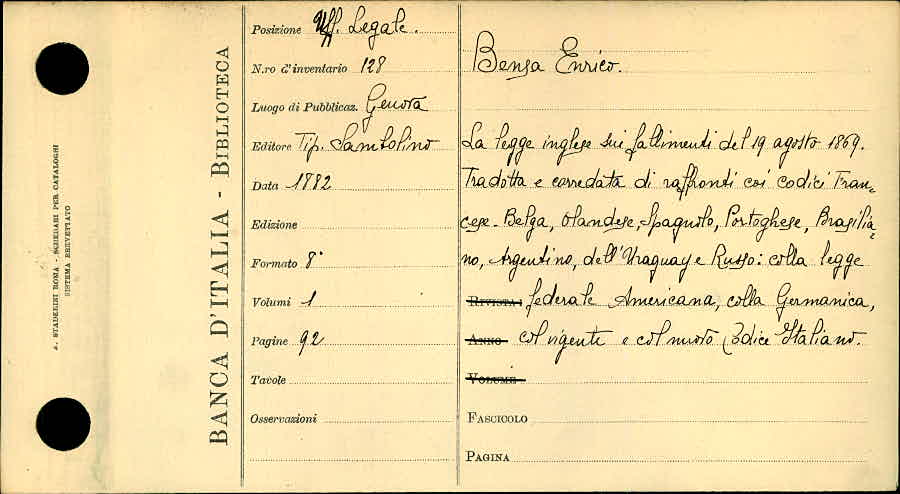 A. STADERINI ROMA - SCHEDARI PER CATALOGHI
SISTEMA BREVETTATO
BANCA D'ITALIA - BIBLIOTECA
Posizione Uff. Legale.
N.ro d'inventario 128
Luogo di Pubblicaz. Genova
Editore Tip. Sambolino
Data 1882
Edizione
Formato 8°
Volumi 1
Pagine 92
Tavole
Osservazioni
Bensa Enrico.
La legge inglese sui fallimenti del 19 agosto 1869.
Tradotta e corredata di raffronti coi codici Fran=
cese - Belga, Olandese, Spagnolo, Portoghese, Brasilia=
no, Argentino, dell'Uraguay e Russo: colla legge
RIVISTA: federale Americana, colla Germanica,
ANNO col vigente e col nuovo Codice Italiano.
VOLUME
FASCICOLO
PAGINA